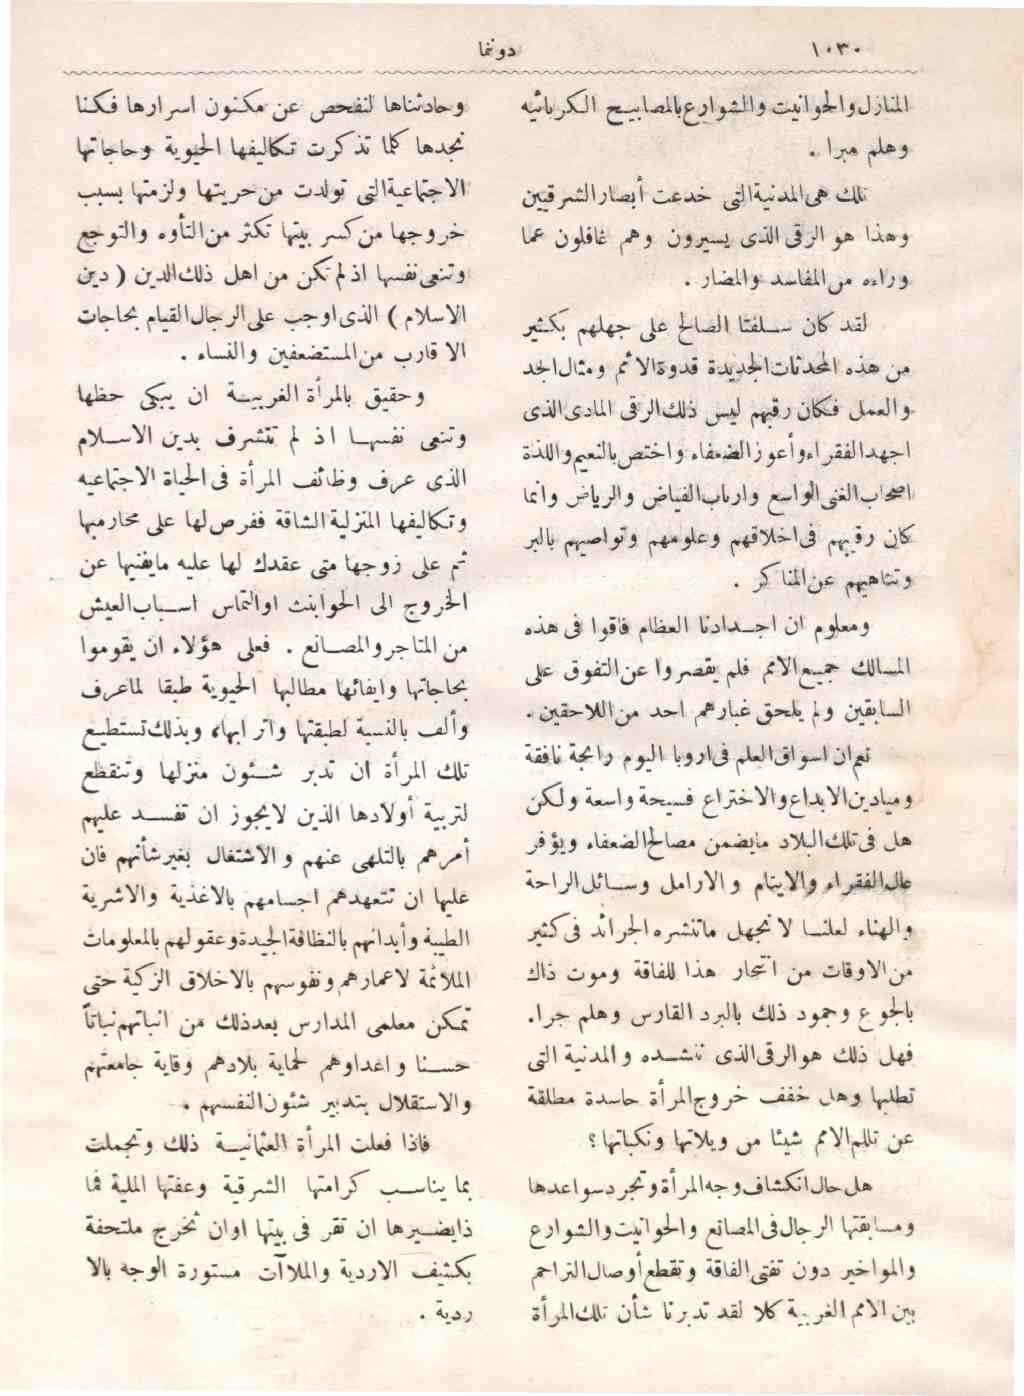 ١٠٣٠
دونما
المنازل والحوانيت والشوارع بالمصابيح الكربائيه
وهلم مبرا .
تلك هى المدنية التى خدعت أبصار الشرقيين
وهذا هو الرقى الذى يسيرون وهم غافلون عما
وراءه من المفاسد والمضار .
لقد كان سلفنا الصالح على جهلهم بكثير
من هذه المحدثات الجديدة قدوة الائم ومثال الجد
والعمل فكان رقيهم ليس ذلك الرقى المادى الذى
اجهد الفقراء وأعوز الضعفاء واختص بالنعيم واللذة
اصحاب الغنى الواسع وارباب الفياض والرياض وانما
كان رقيهم فى اخلاقهم وعلومهم وتواصيهم بالبر
وتناهيهم عن المناكر .
ومعلوم ان اجدادنا العظام فاقوا فى هذه
المسالك جميع الامم فلم يقصروا عن التفوق على
السابقين ولم يلحق غبارهم احد من اللاحقين .
نعم ان اسواق العلم فى اروبا اليوم رابحة نافقة
وميادين الابداع والاختراع فسيحة واسعة ولكن
هل فى تلك البلاد مايضمن مصالح الضعفاء ويؤفر
على الفقراء والايتام والارامل وسائل الراحة
والهناء لعلنا لا نجهل ماتنشره الجرائد فى كثير
من الاوقات من انتحار هذا للفاقة وموت ذاك
بالجوع وجمود ذلك بالبرد القارس وهلم جرا.
فهل ذلك هو الرقى الذى ننشده والمدنية التى
تطلبها وهل خفف خروج المرأة حاسدة مطلقة
عن تلك الامم شيئا من ويلاتها ونكباتها ؟
هل حال انكشاف وجه المرأة وتجرد سواعدها
ومسابقتها الرجال فى المصانع والحوانيت والشوارع
والمواخير دون تفتى الفاقة وتقطع أوصال التراحم
بين الامم الغربية كلا لقد تدبرنا شأن تلك المرأة
وحادثناها لنفحص عن مكنون اسرارها فكنا
نجدها كلما تذكرت تكاليفها الحيوية وحاجاتها
الاجتماعية التى تولدت من حريتها ولزمتها بسبب
خروجها من كسر بيتها تكثر من التأوه والتوجع
وتنعى نفسها اذ لم تكن من اهل ذلك الدين ( دين
الاسلام ) الذى اوجب على الرجال القيام بحاجات
الاقارب من المستضعفين والنساء .
وحقيق بالمرأة الغربية ان يبكى حظها
وتنعى نفسها اذ لم تتشرف بدين الاسلام
الذى عرف وظائف المرأة فى الحياة الاجتماعيه
وتكاليفها المنزلية الشاقة ففرض لها على محارمها
ثم على زوجها متى عقدك لها عليه مايغنيها عن
الخروج الى الحوابنت اوالتماس اسباب العيش
من المتاجر والمصانع . فعلى هؤلاء ان يقوموا
بحاجاتها وايفائها مطالبها الحيوية طبقا لماعرف
وألف بالنسبة لطبقتها واترابها، وبذلك تستطيع
تلك المرأة ان تدبر شئون منزلها وتنقظع
لتربية أولادها الذين لايجوز ان تفسد عليهم
أمرهم بالتلهى عنهم والاشتغال بغير شأنهم فان
عليها ان تتعهدهم اجسامهم بالاغذية والاشرية
الطيبة وأبدانهم بالنظافة الجيدة وعقولهم بالمعلومات
الملائمة لاعمارهم ونفوسهم بالاخلاق الزكية حتى
تمكن معلمى المدارس بعد ذلك من انباتهم نباتاً
حسنا واعداوهم لحماية بلادهم وقاية جامعتهم
والاستقلال بتدبير شئون النفسهم .
فاذا فعلت المرأة العثمانية ذلك وتجملت
بما يناسب كرامتها الشرقية وعفتها الملية فما
ذايضيرها ان تقر فى بيتها اوان تخرج ملتحفة
بكثيف الاردية والملاآت مستورة الوجه بالا
ردية .